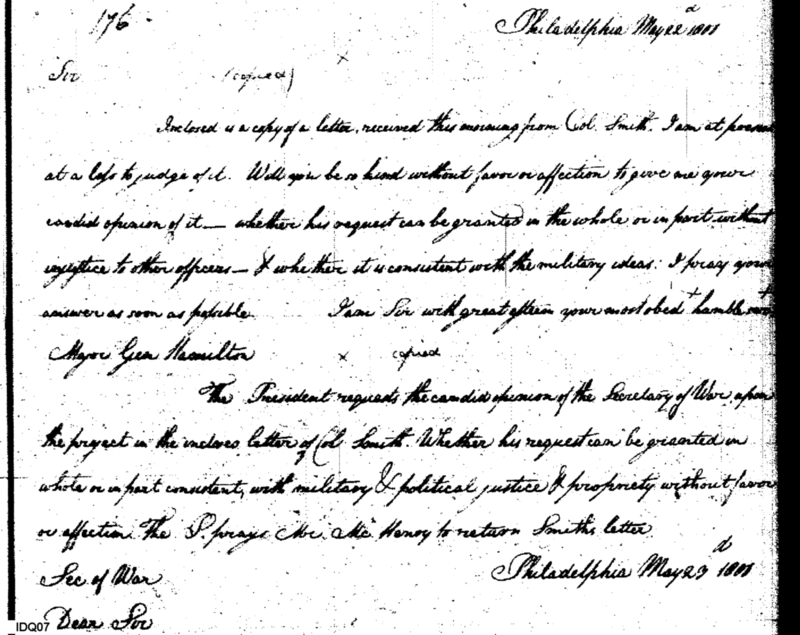 176
Philadelphia May 22d 1800
Sir (copied) x
Inclosed is a copy of a letter, received this morning from Col. Smith. I am at present
at a loss to judge of it. Will you be so kind without favor or affection to give me your
candid opinion of it — whether his request can be granted in the whole or in part without
injustice to other officers — & whether it is consistent with the military ideas. I pray your
answer as soon as possible. I am Sir with great esteem your most obedt humble
Major Gen Hamilton x copied
The President requests the candid opinion of the Secretary of War, upon
the project in the inclosed letter of Col Smith. Whether his request can be granted in
whole or in part consistent, with military & political justice & propriety without favor
or affection. The P. prays Mr. McHenry to return Smiths letter
Sec of War Philadelphia May 23d 1800
Dear Sir
IDQ07